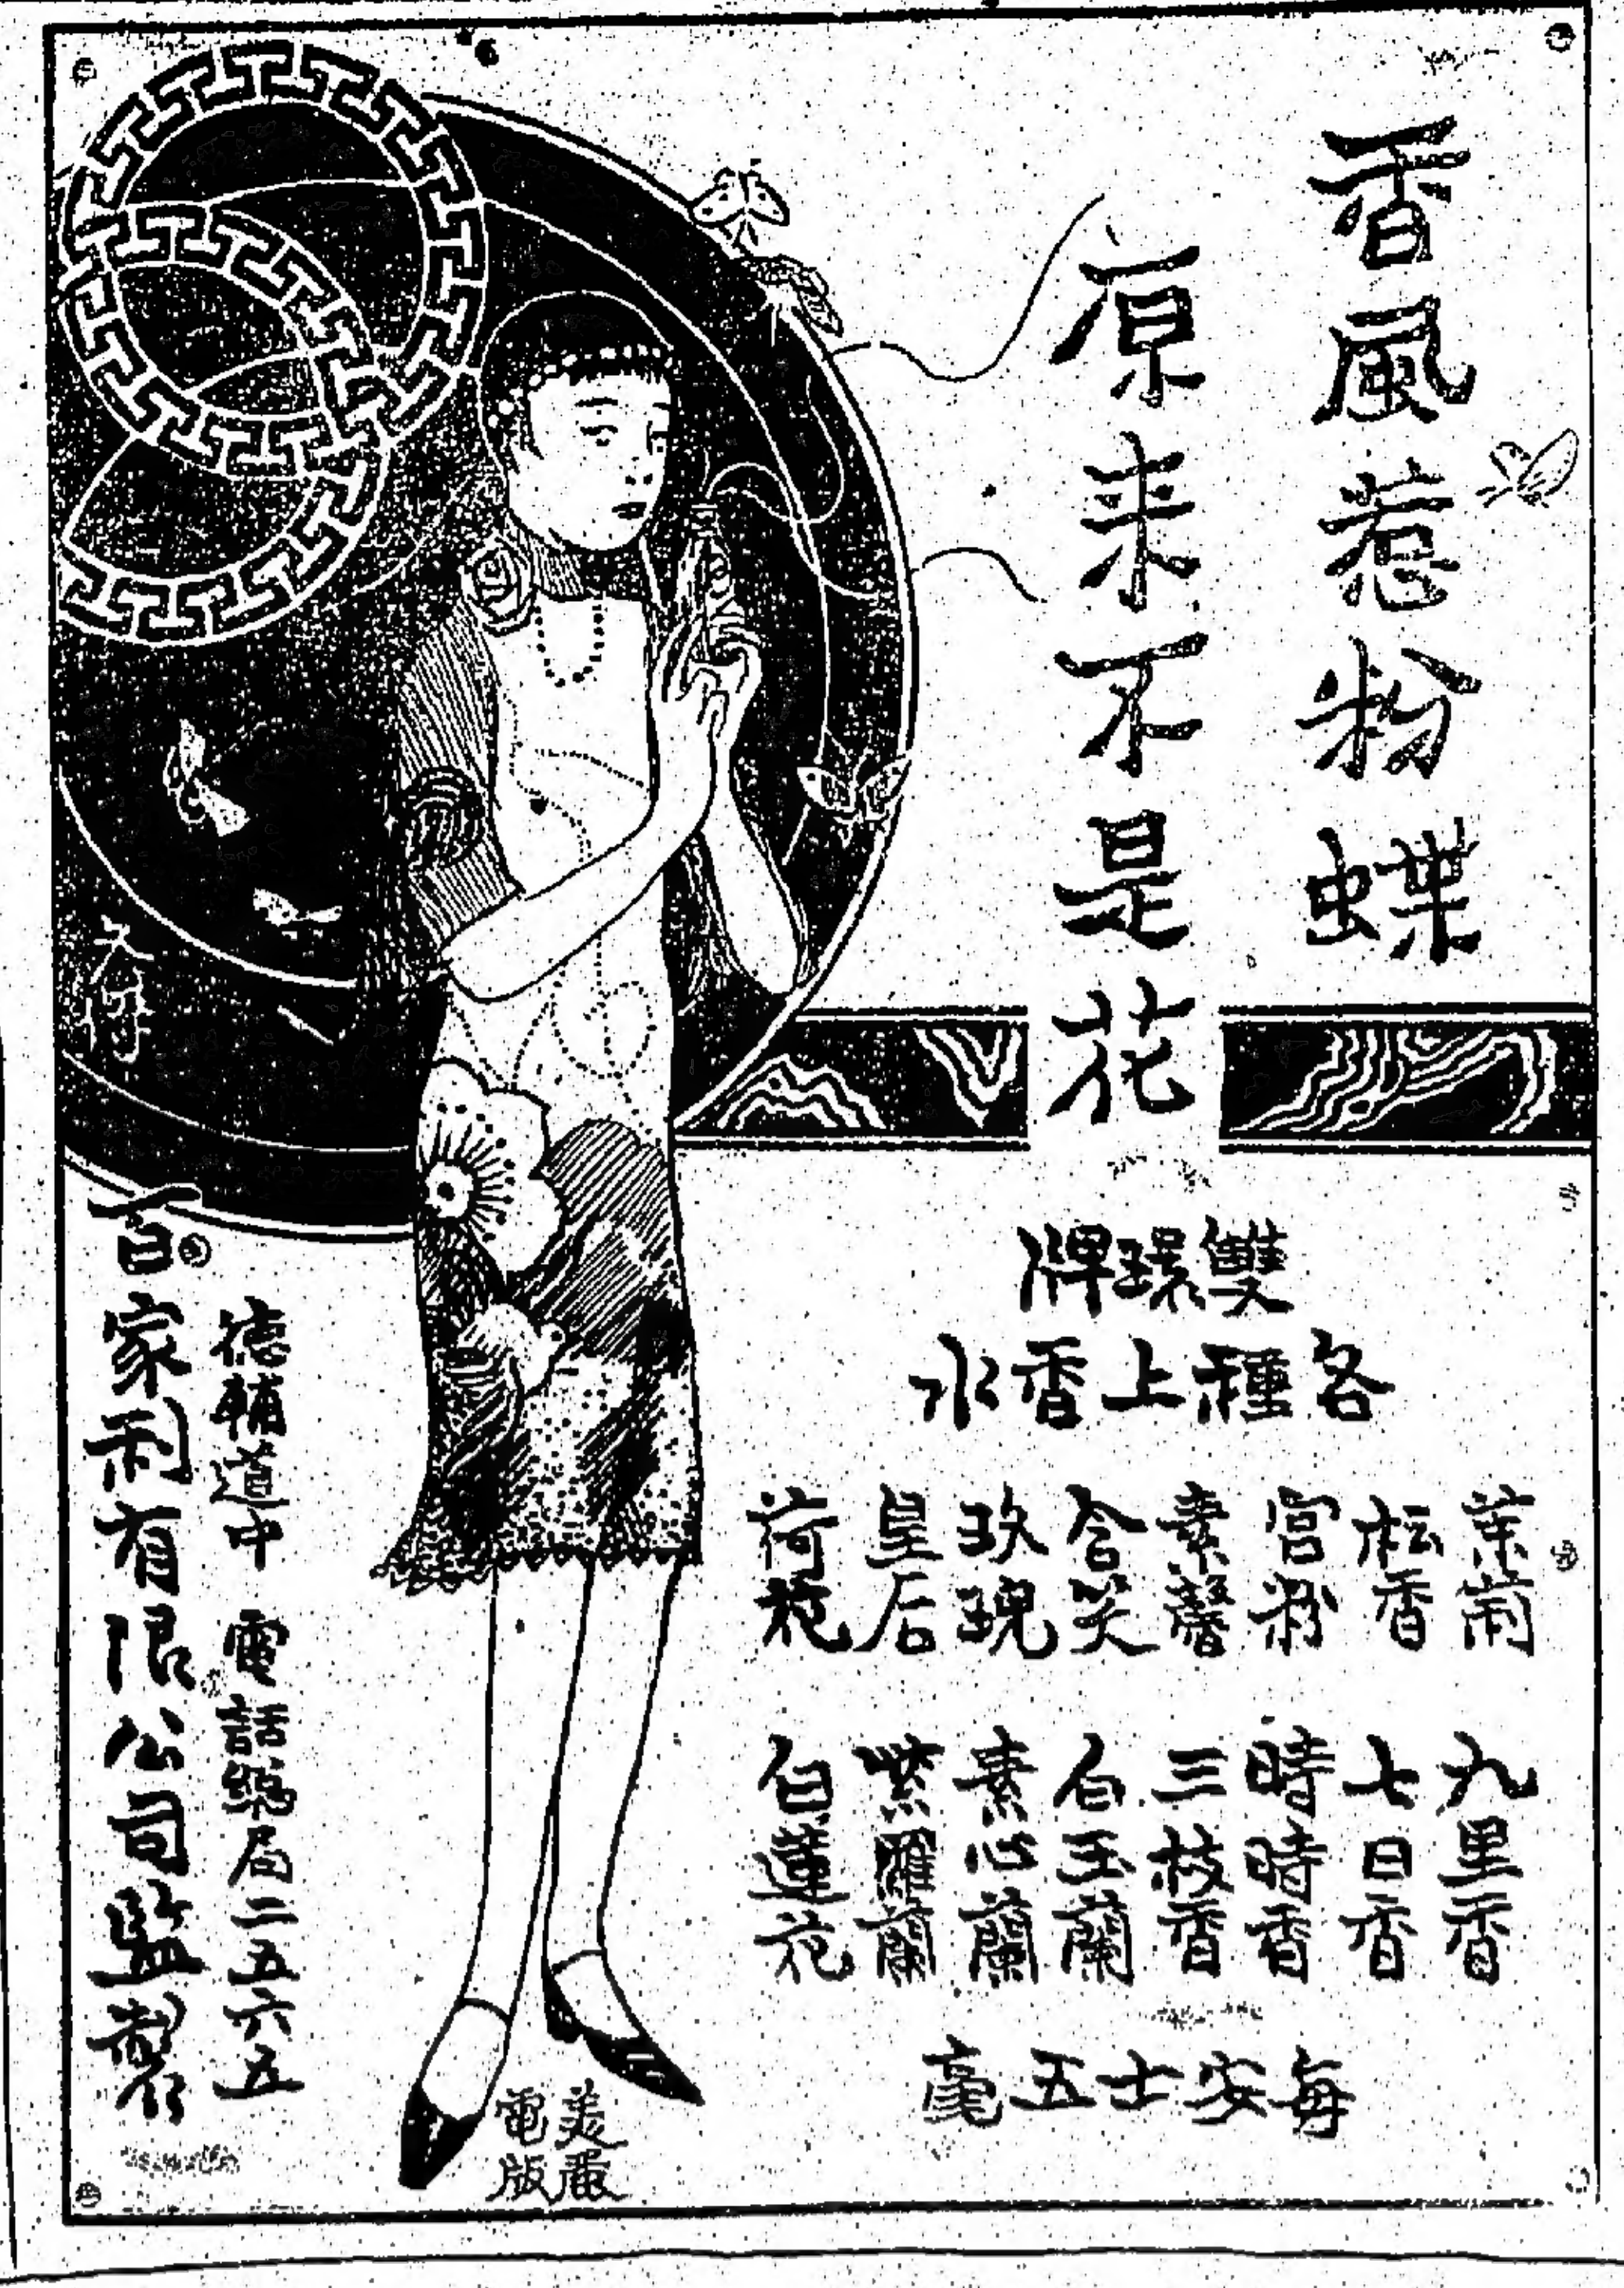 香風惹粉蝶
原来不是花
雙環牌
各種上香水
茉莉
松香
宫粉
素馨
含笑
玫瑰
皇后
荷花
九里香
七日香
時時香
三枝香
白玉蘭
素心蘭
紫羅蘭
白蓮花
每安士五毫
德輔道中 電話總局二五六五
百家利有限公司監製
電版